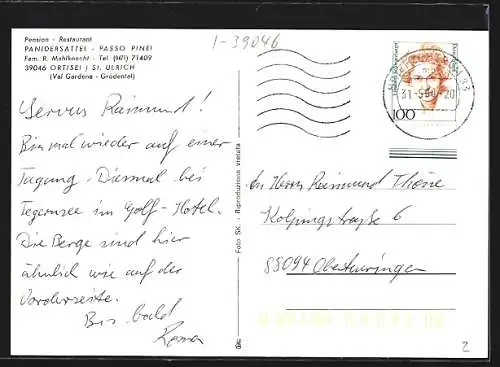 Pension - Restaurant
PANIDERSATTEL - PASSO PINEI
Fam. R. Mahlknecht - Tel (0471) 71409
39046 ORTISEI / ST. ULRICH
(Val Gardena - Grödental)
1-39046
Servus Raimund!
Bin mal wieder auf einer
Tagung. Diesmal bei
Tegernsee im Golf-Hotel.
Die Berge sind hier
ähnlich wie auf der
Vorderseite.
Bis bald
Foto SK. - Riproduzione vietata
100
31.-5.
-20
83
An Herrn Raimund Thöne
Kolpingstraße 6
85094 Oberthüringen
2